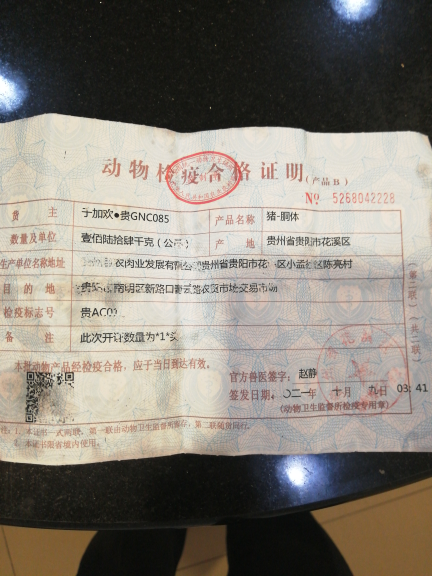 动物检疫合格证明 (产品B)
No 5268042228
货主 于加欢●贵GNC085 产品名称 猪-胴体
数量及单位 壹佰陆拾肆千克(公斤) 产地 贵州省贵阳市花溪区
生产单位名称地址 农肉业发展有限公司贵州省贵阳市花溪区小孟社区陈亮村
目的地 贵 南明区新路口 农贸市场交易市场
检疫标志号 贵AC0
备注 此次开证数量为*1*头
本批动物产品经检疫合格，应于当日到达有效。
官方兽医签字 赵静
签发日期： 二一年 十月 九日 03:41
(动物卫生监督所检疫专用章)
注：1. 本证书一式两联，第一联由动物卫生监督所留存，第二联随货同行。
2. 本证书限省境内使用。
(第二联)(共二联)